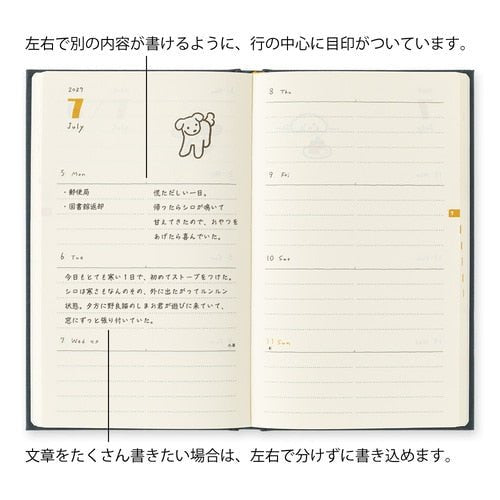 左右で別の内容が書けるように、行の中心に目印がついています。
2027
7
July
5 Mon
・郵便局
・図書館返却
慌ただしい一日。
帰ったらシロが鳴いて
甘えてきたので、おやつを
あげたら喜んでいた。
6 Tue
今日もとても寒い1日で、初めてストーブをつけた。
シロは寒さもなんのその、外に出たがってルンルン
状態。夕方に野良猫のしまお君が遊びに来ていて、
窓にずっと張り付いていた。
7 Wed
8 Thu
9 Fri
10 Sat
11 Sun
7
文章をたくさん書きたい場合は、左右で分けずに書き込めます。